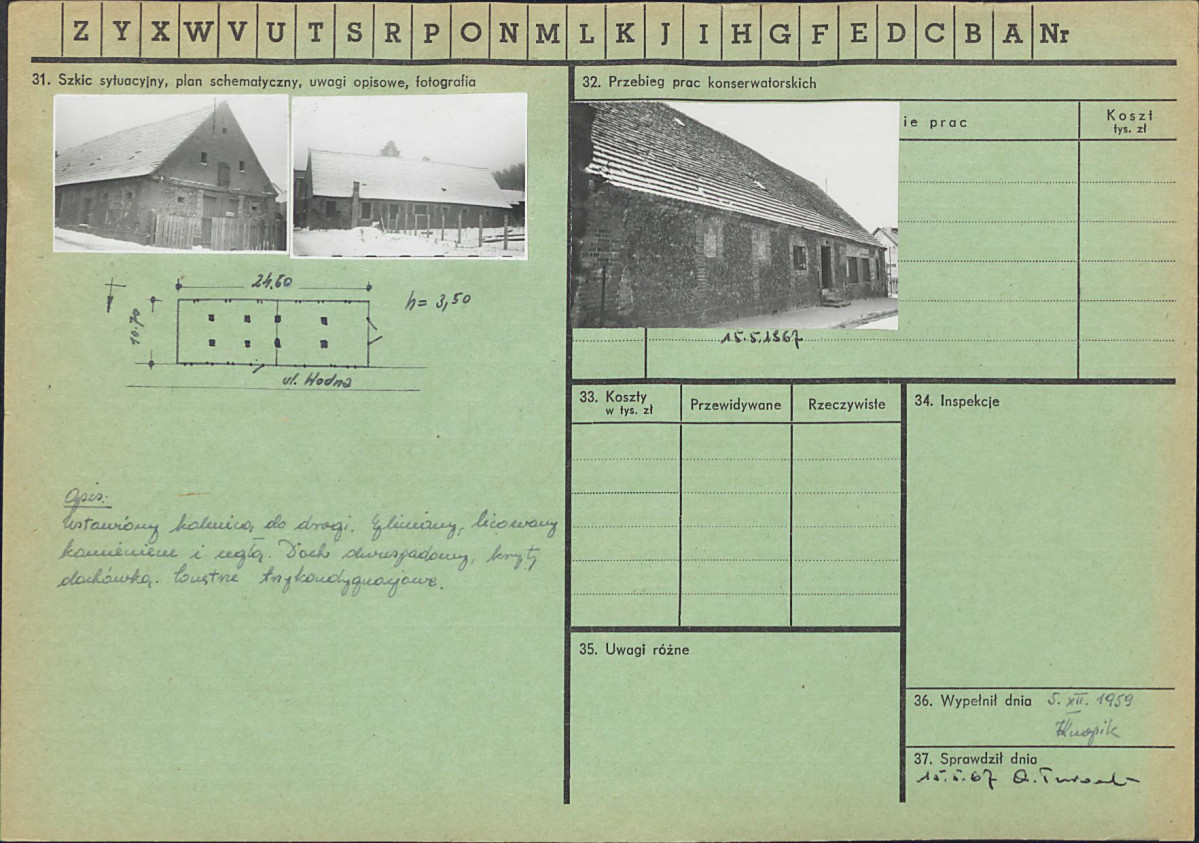 Z Y X W V U T S R P O N M L K J I H G F E D C B A Nr
31. Szkic sytuacyjny, plan schematyczny, uwagi opisowe, fotografia
24,60
h = 3,50
10.70
ul. Wodna
Opis:
Ustawiony kalenicą do drogi. Gliniany, licowany
kamieniem i cegłą. Dach dwuspadowy, kryty
dachówką. Wnętrze trzykondygnacjowe.
32. Przebieg prac konserwatorskich
ie prac
Koszt
tys. zł
15.5.1967
33. Koszty
w tys. zł
Przewidywane
Rzeczywiste
34. Inspekcje
35. Uwagi różne
36. Wypełnił dnia 5. XII. 1959
37. Sprawdził dnia
15.5.67